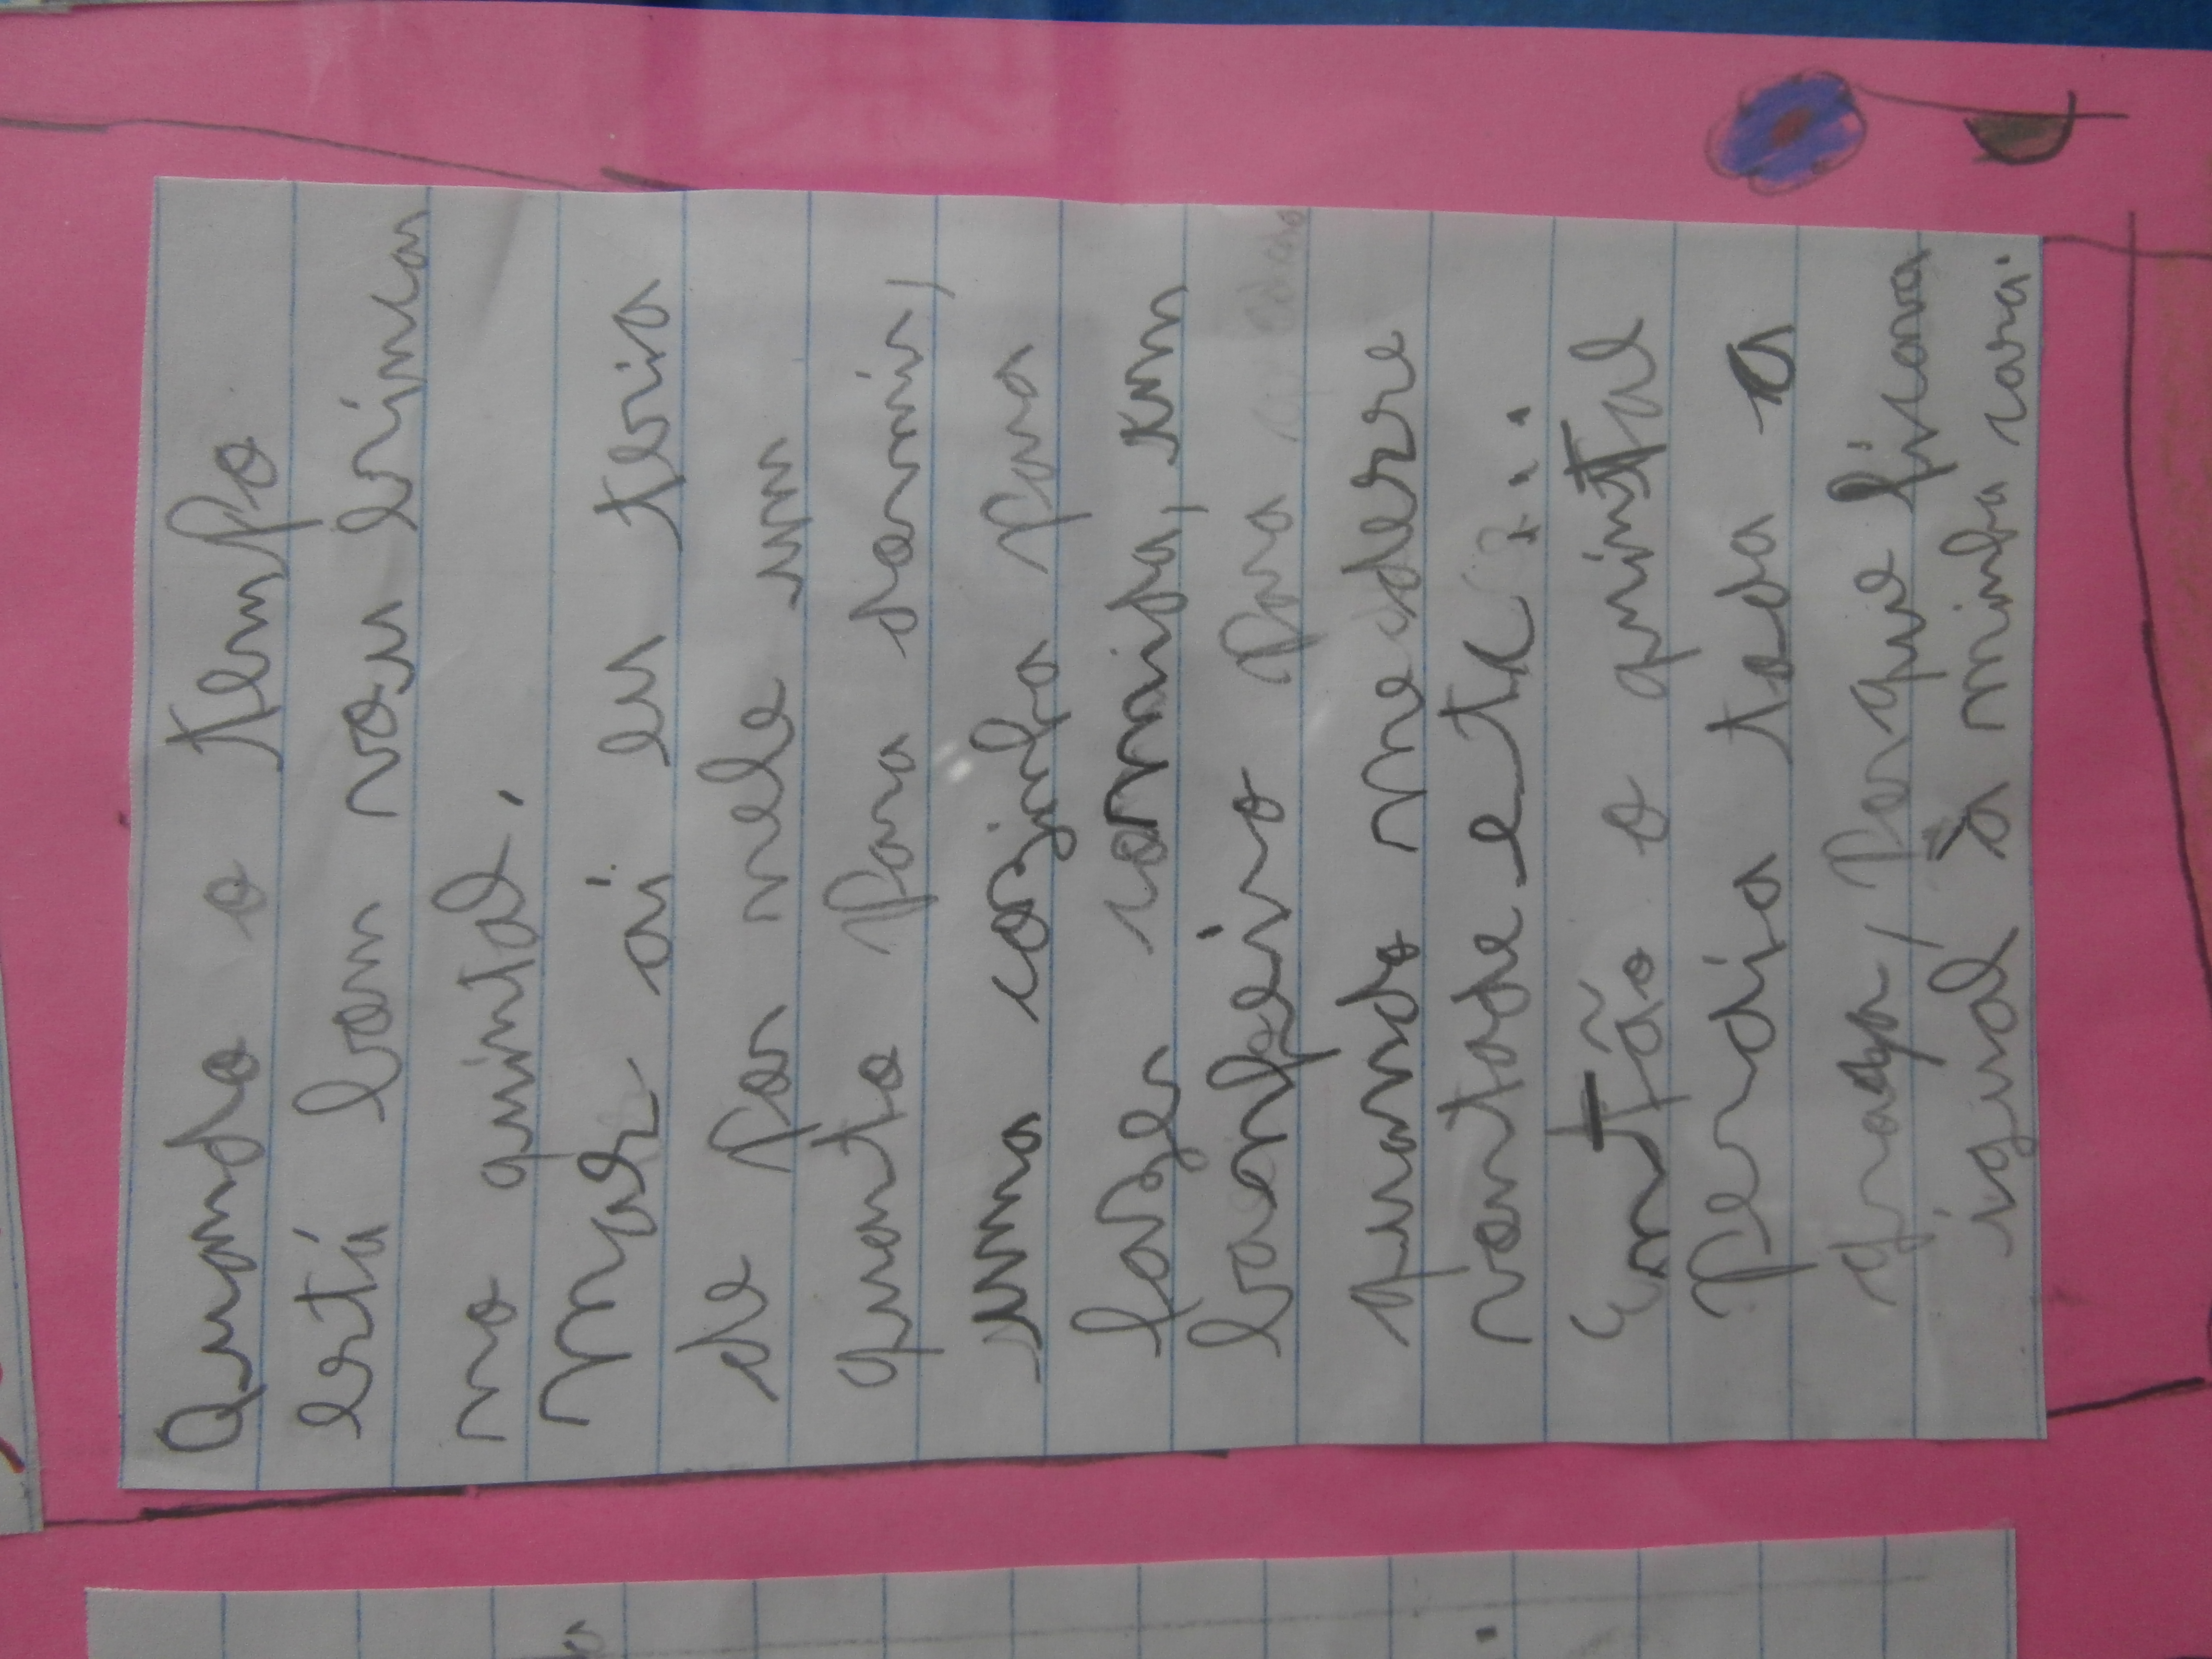 Quando o tempo
está bom vou brincar
no quintal.
Mas ai eu teria
de por nele um
quarto para dormir,
uma cozinha para
fazer comida, um
banheiro para
quando me desse
vontade etc...
Então o quintal
perdia toda a
graça, porque ficava
igual à minha casa.